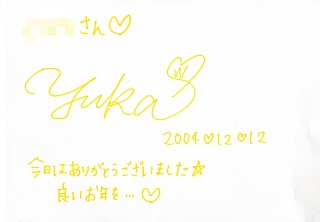 さん♡
Yuka
2004♡12♡12
今日はありがとうございました☆
良いお年を…♡